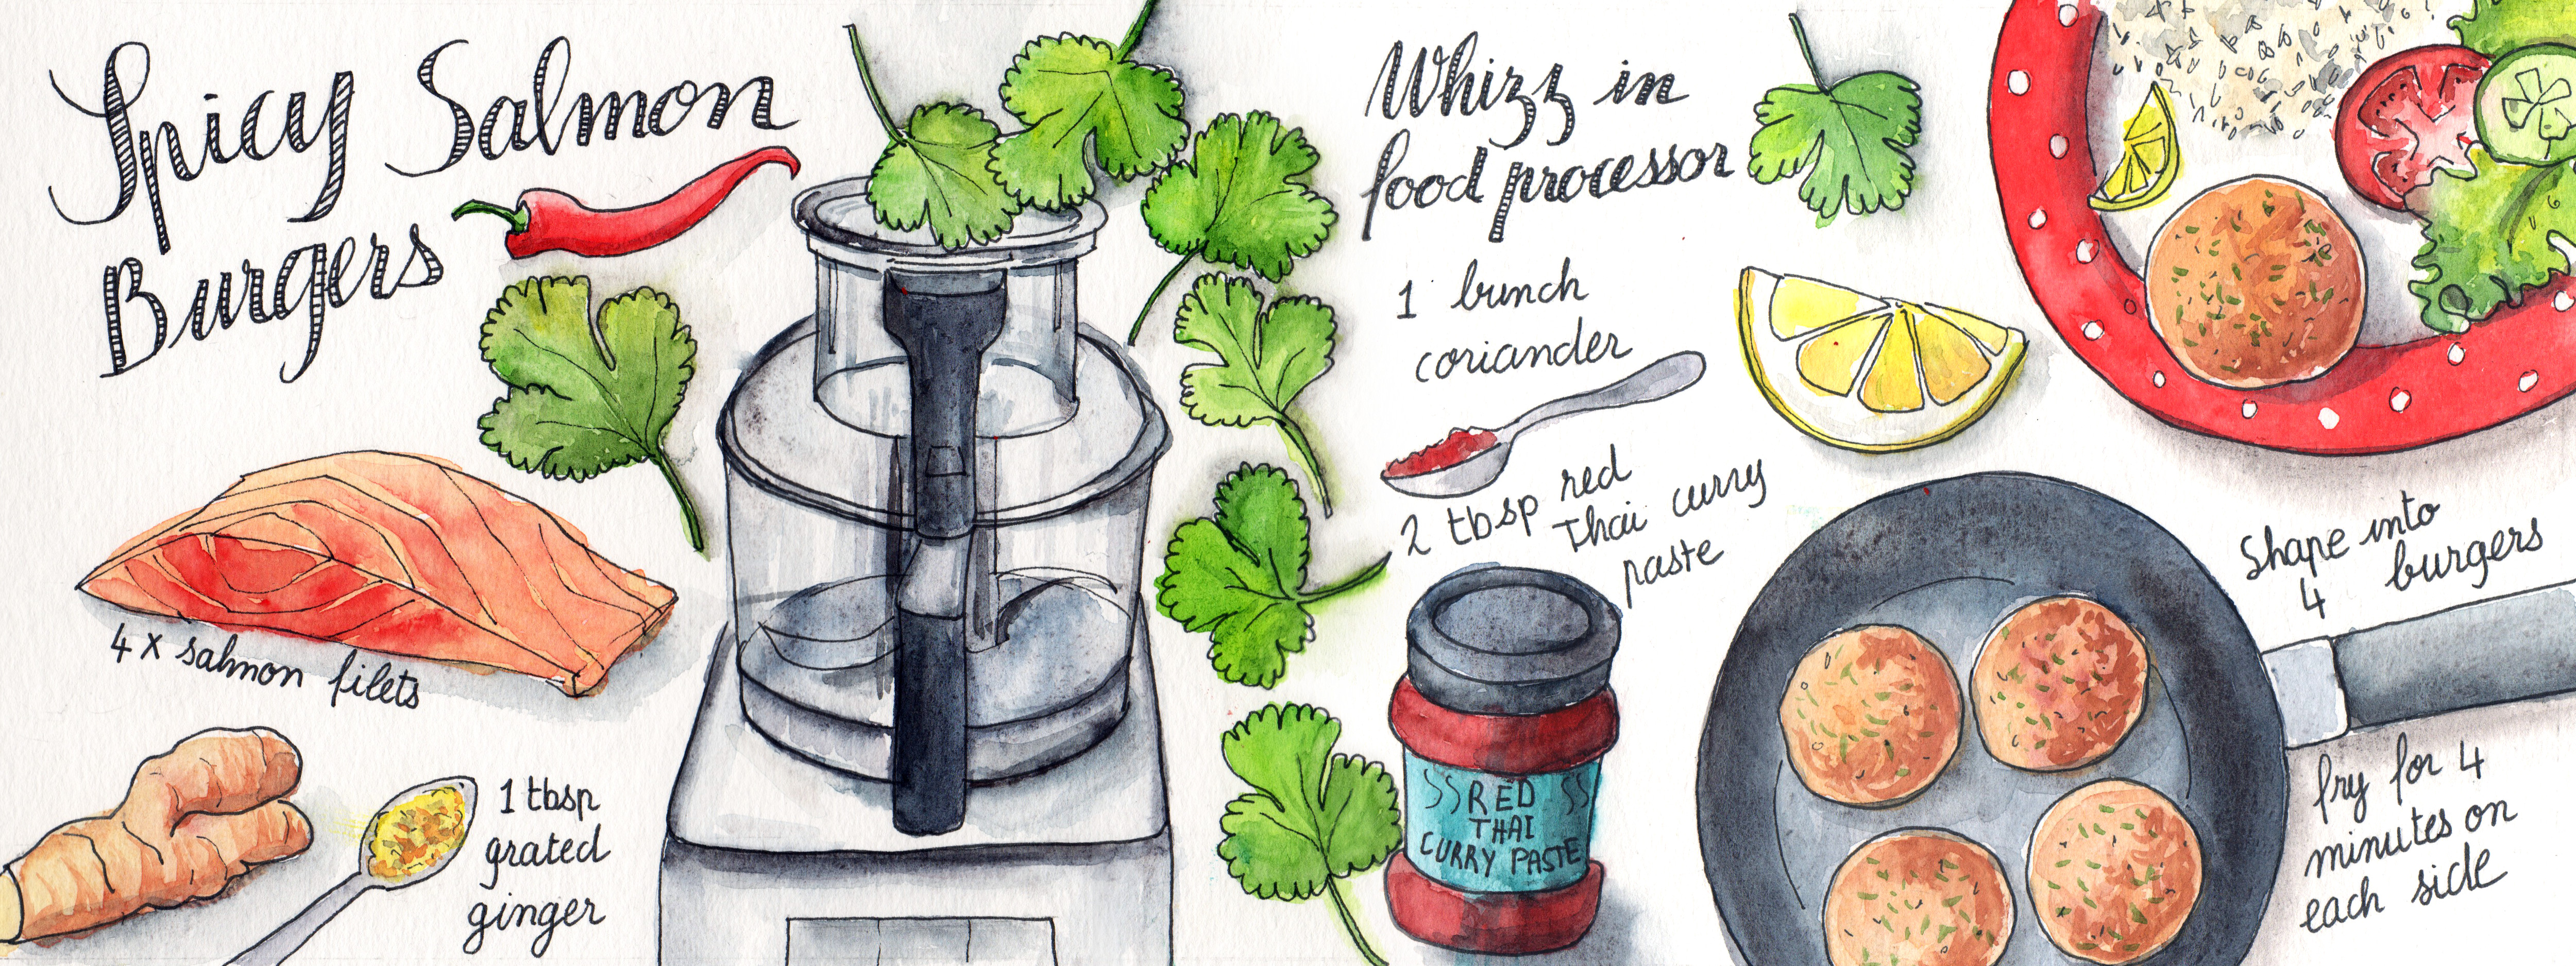 Spicy Salmon
Burgers
4 x salmon filets
1 tbsp
grated
ginger
Whizz in
food processor
1 bunch
coriander
2 tbsp red
Thai curry
paste
RED
THAI
CURRY PASTE
Shape into
4 burgers
fry for 4
minutes on
each side